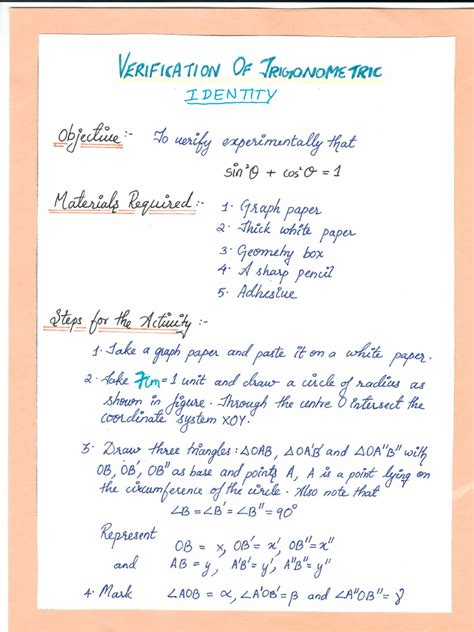 VERIFICATION OF TRIGONOMETRIC
IDENTITY
Objective :- To verify experimentally that
sin²θ + cos²θ = 1
Materials Required :- 1. Graph paper
2. Thick white paper
3. Geometry box
4. A sharp pencil
5. Adhesive
Steps for the Activity :-
1. Take a graph paper and paste it on a white paper.
2. Take 7cm = 1 unit and draw a circle of radius as
shown in figure. Through the centre O intersect the
coordinate system XOY.
3. Draw three triangles : △OAB, △OA'B' and △OA"B" with
OB, OB', OB" as base and points A, A is a point lying on
the circumference of the circle. Also note that
∠B = ∠B' = ∠B" = 90°
Represent
OB = x, OB' = x', OB" = x"
and AB = y, A'B' = y', A"B" = y"
4. Mark ∠AOB = α, ∠A'OB' = β and ∠A"OB" = γ